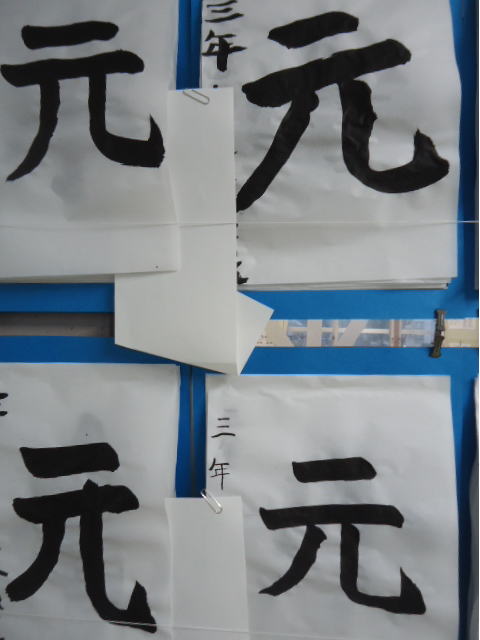 元
三年
元
元
三年
元